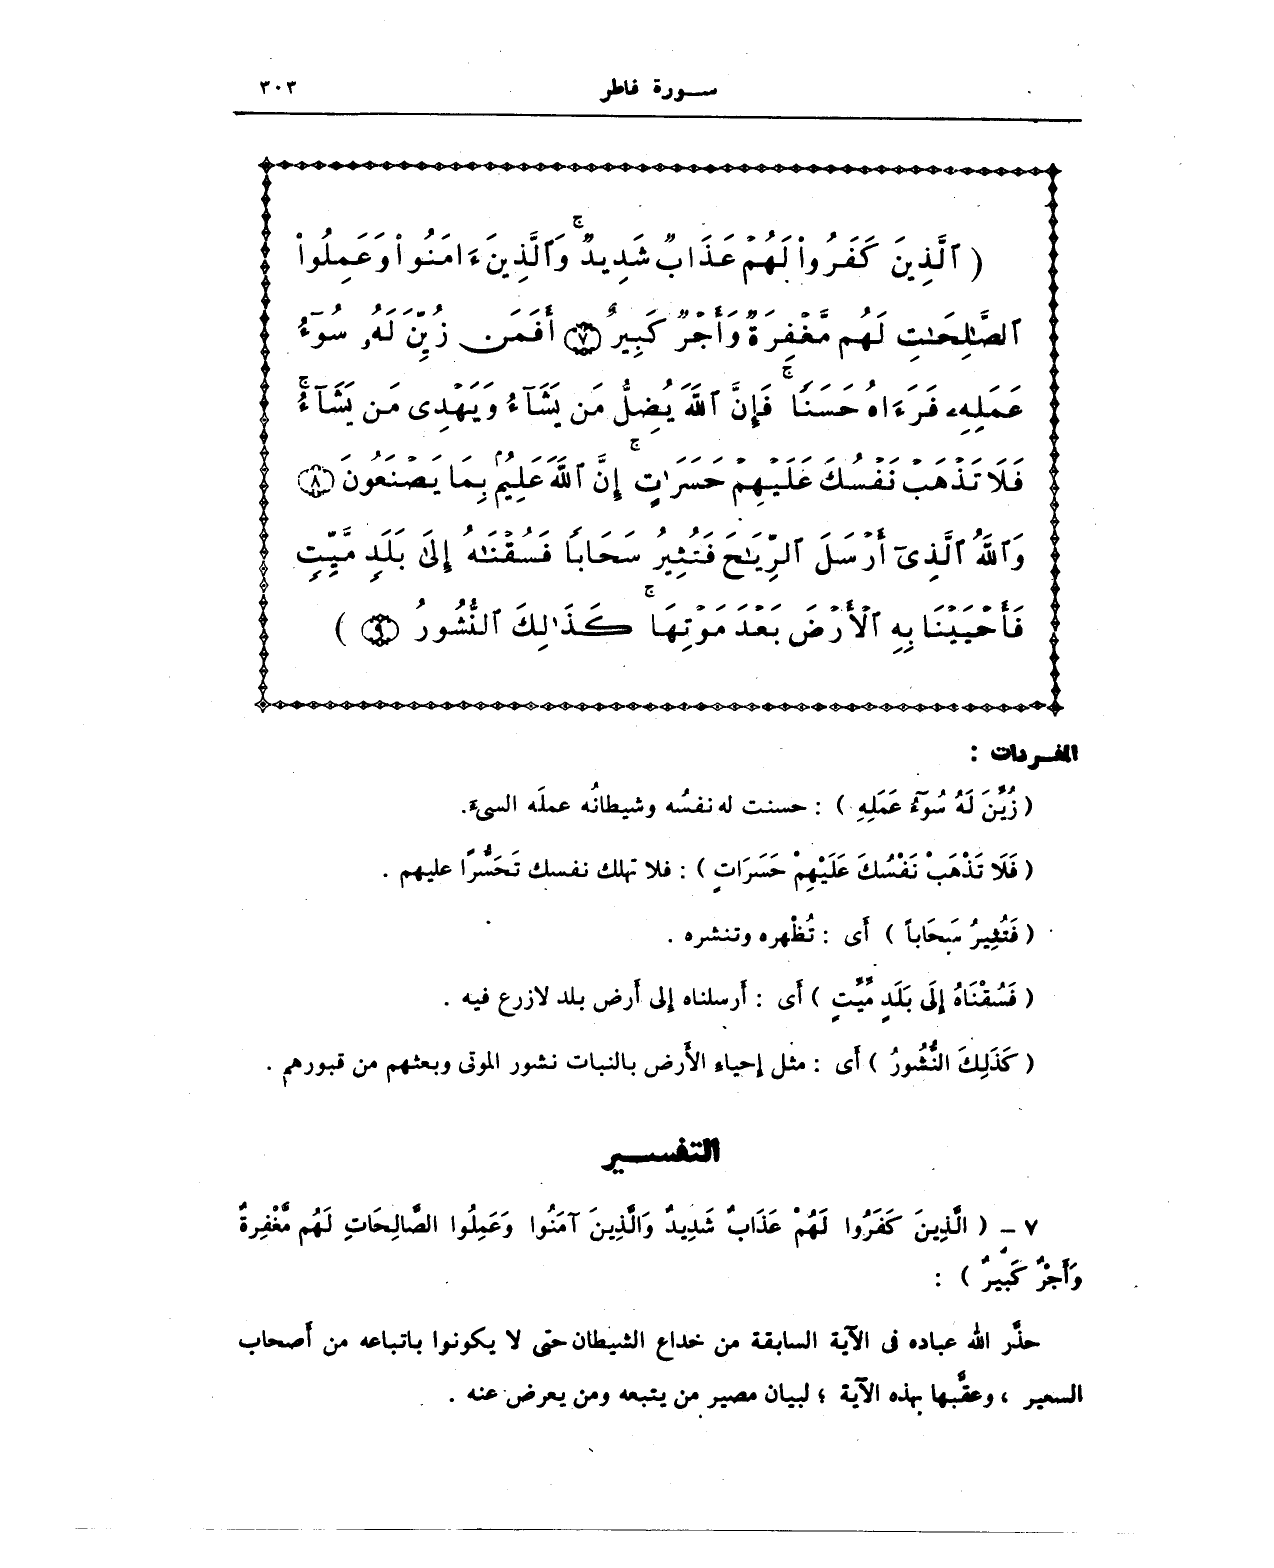 سورة فاطر ٣٠٣
( ٱلَّذِينَ كَفَرُوا۟ لَهُمْ عَذَابٌ شَدِيدٌ ۚ وَٱلَّذِينَ ءَامَنُوا۟ وَعَمِلُوا۟
ٱلصَّٰلِحَٰتِ لَهُم مَّغْفِرَةٌ وَأَجْرٌ كَبِيرٌ ٧ أَفَمَن زُيِّنَ لَهُۥ سُوٓءُ
عَمَلِهِۦ فَرَءَاهُ حَسَنًا ۖ فَإِنَّ ٱللَّهَ يُضِلُّ مَن يَشَآءُ وَيَهْدِى مَن يَشَآءُ ۖ
فَلَا تَذْهَبْ نَفْسُكَ عَلَيْهِمْ حَسَرَٰتٍ ۚ إِنَّ ٱللَّهَ عَلِيمٌۢ بِمَا يَصْنَعُونَ ٨
وَٱللَّهُ ٱلَّذِىٓ أَرْسَلَ ٱلرِّيَٰحَ فَتُثِيرُ سَحَابًا فَسُقْنَٰهُ إِلَىٰ بَلَدٍ مَّيِّتٍ
فَأَحْيَيْنَا بِهِ ٱلْأَرْضَ بَعْدَ مَوْتِهَا ۚ كَذَٰلِكَ ٱلنُّشُورُ ٩ )
المفردات :
( زُيِّنَ لَهُ سُوٓءُ عَمَلِهِ ) : حسنت له نفسُه وشيطانُه عملَه السيىء.
( فَلَا تَذْهَبْ نَفْسُكَ عَلَيْهِمْ حَسَرَاتٍ ) : فلا تهلك نفسك تَحَسُّرًا عليهم .
( فَتُثِيرُ سَحَاباً ) أَى : تُظْهره وتنشره .
( فَسُقْنَاهُ إِلَى بَلَدٍ مَّيِّتٍ ) أَى : أَرسلناه إلى أَرض بلد لازرع فيه .
( كَذَلِكَ النُّشُورُ ) أَى : مثل إحياء الأَرض بالنبات نشور الموتى وبعثهم من قبورهم .
التفسير
٧ - ( الَّذِينَ كَفَرُوا لَهُمْ عَذَابٌ شَدِيدٌ وَالَّذِينَ آمَنُوا وَعَمِلُوا الصَّالِحَاتِ لَهُم مَّغْفِرَةٌ
وَأَجْرٌ كَبِيرٌ ) :
حذَّر الله عباده فى الآية السابقة من خداع الشيطان حتى لا يكونوا باتباعه من أَصحاب
السعير ، وعقَّبها بهذه الآية ؛ لبيان مصير من يتبعه ومن يعرض عنه .